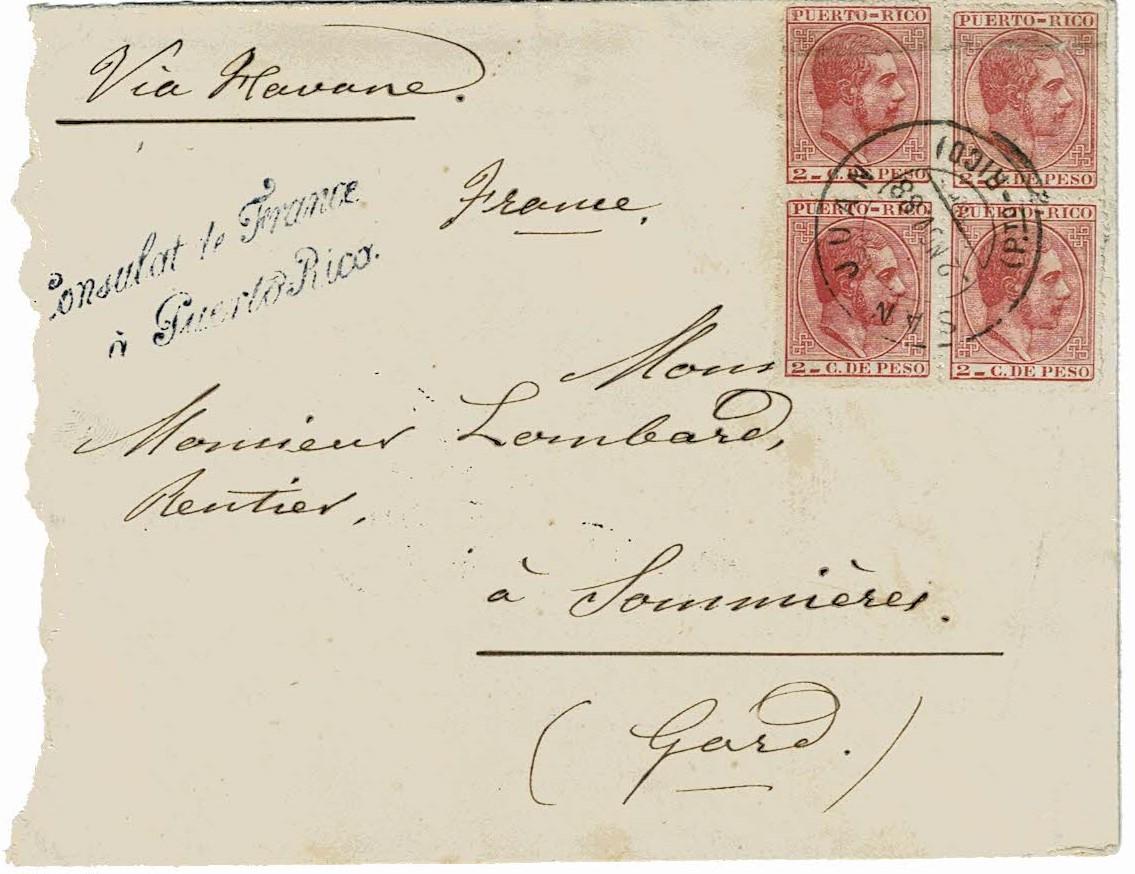 Via Havane.
France.
Consulat de France
à Puerto Rico.
PUERTO-RICO
2- C. DE PESO
PUERTO-RICO
2- C. DE PESO
PUERTO-RICO
2- C. DE PESO
PUERTO-RICO
2- C. DE PESO
SAN JUAN (PTO-RICO)
Mons
Monsieur Lombard,
Rentier,
à Sommières.
(Gard.)